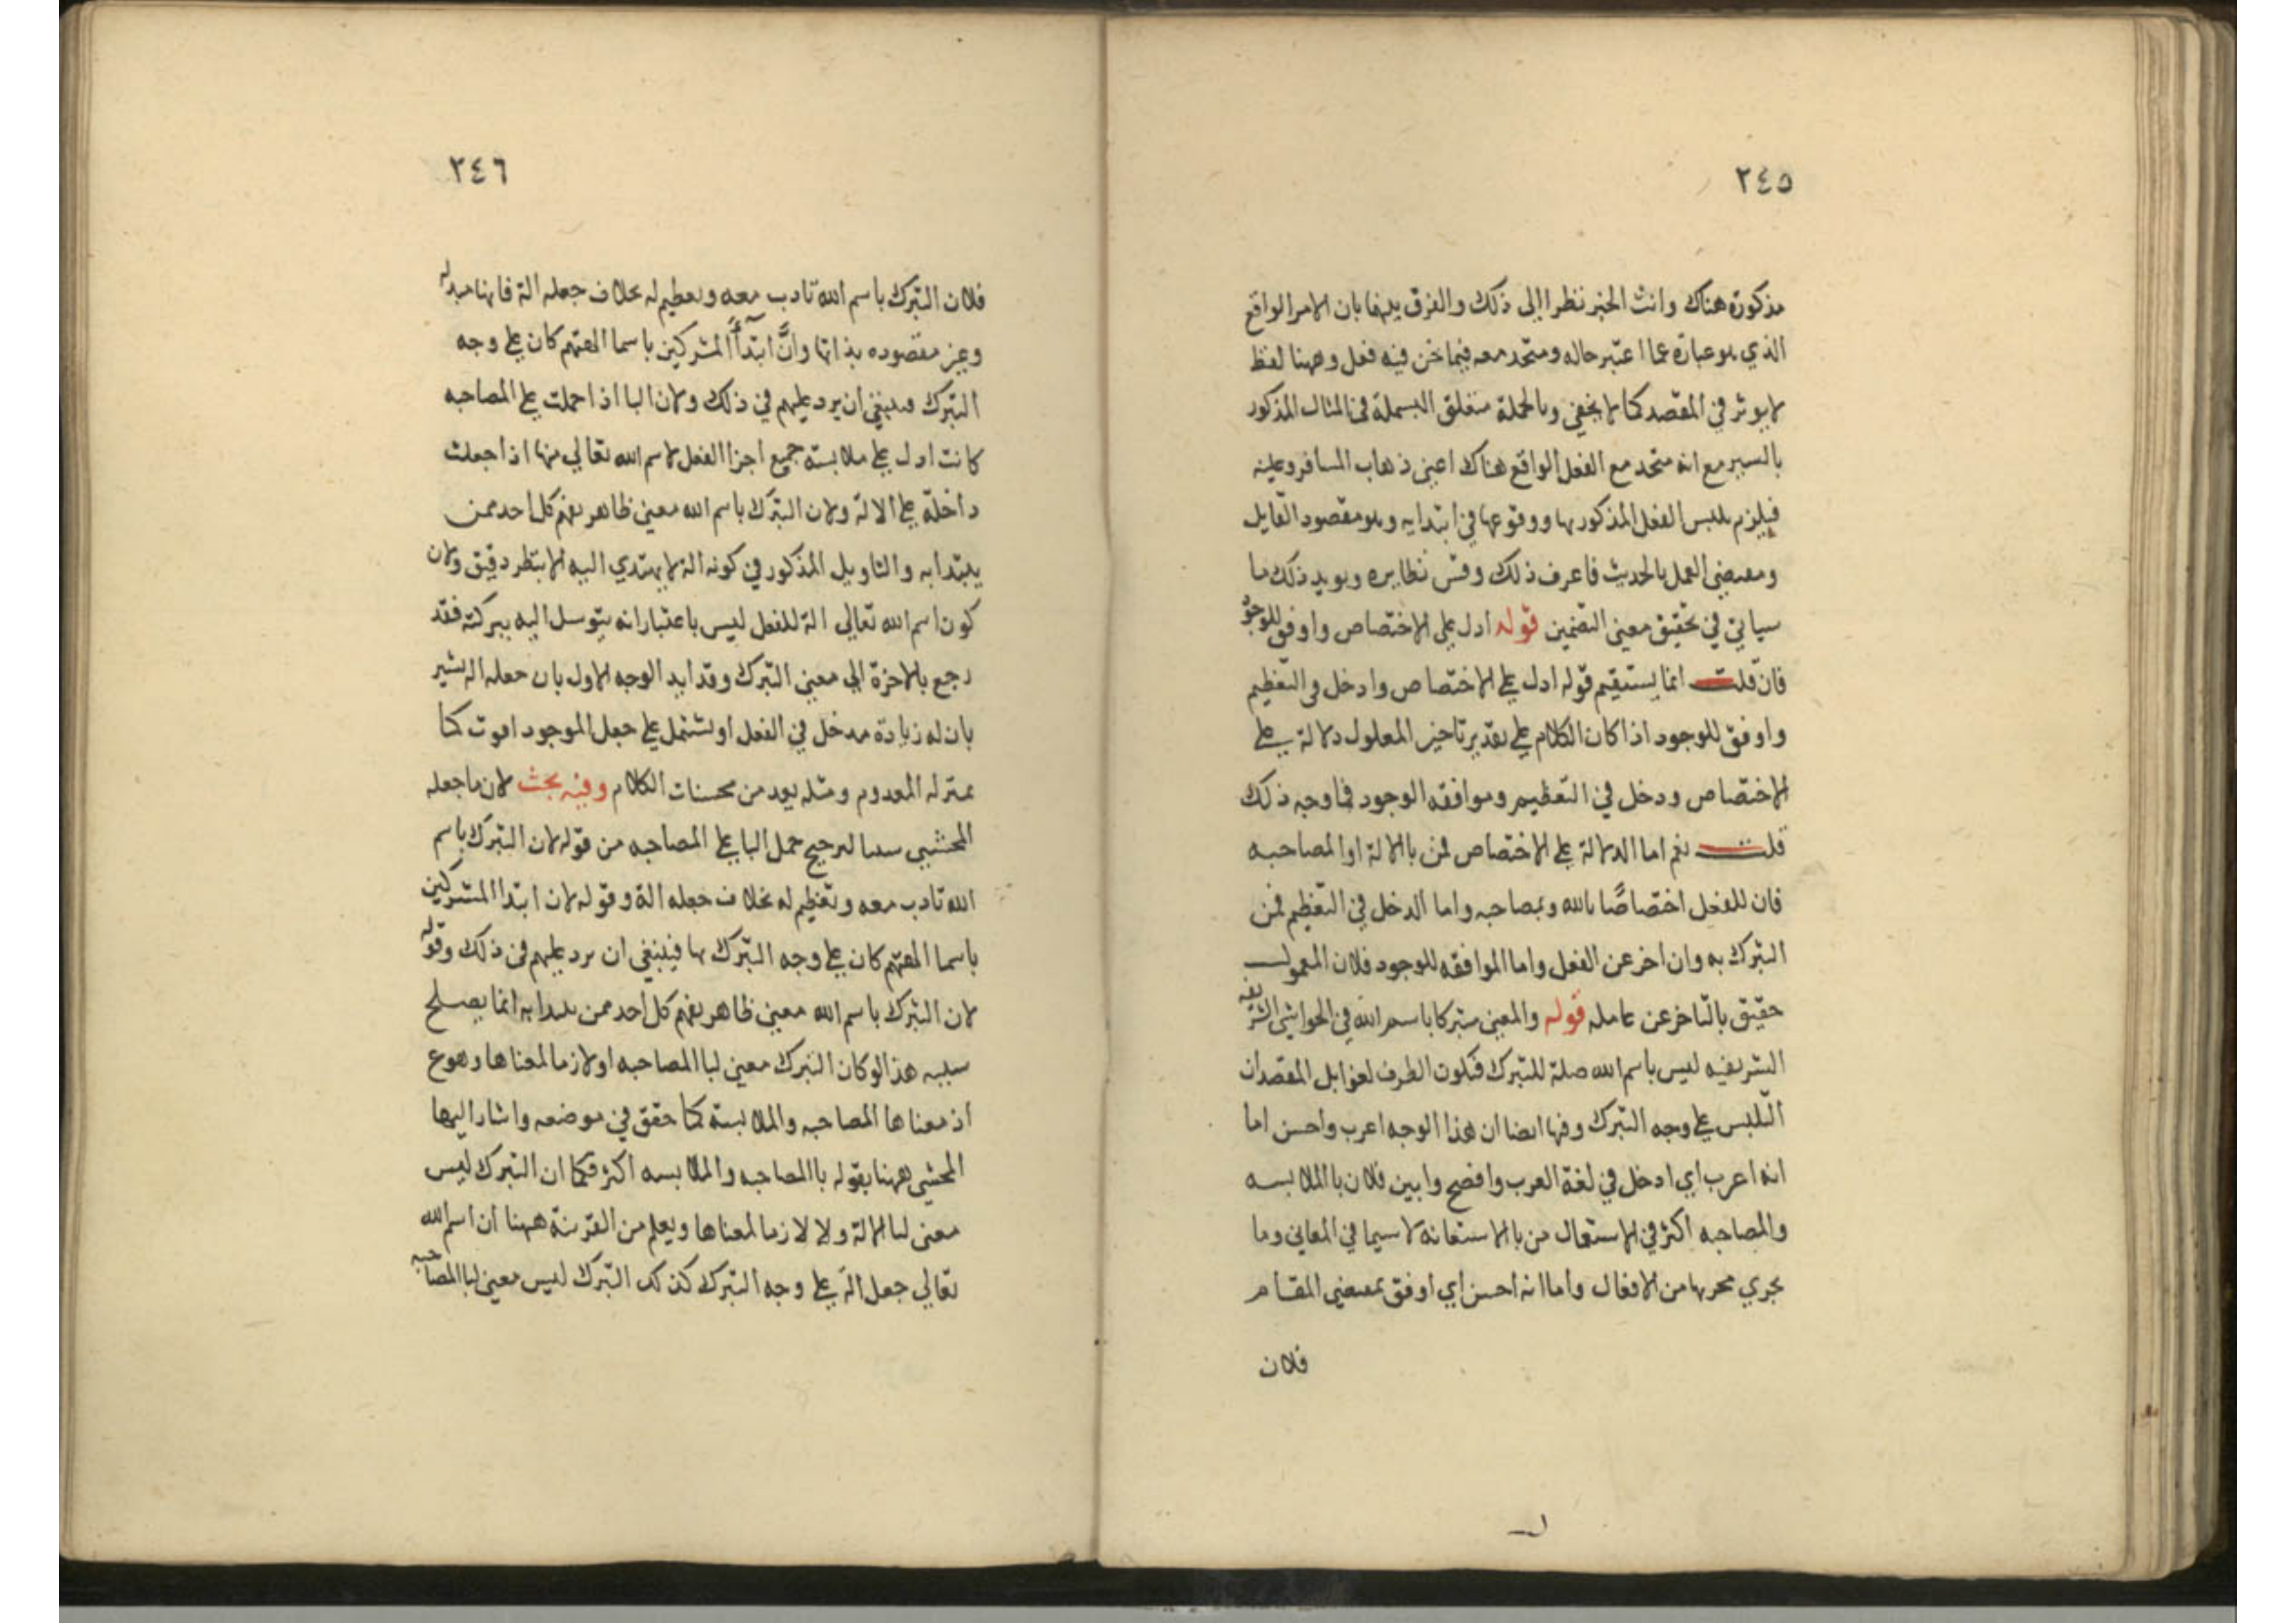 ٢٤٥
مذكورة هناك وانث الخبر نظرا الى ذلك والفرق بينهما بان الامر الواقع
الذي هو عبارة عما اعتبر حاله ومتحد معه فيما نحن فيه فعل وههنا لفظ
لا يوثر في المقصد كما لا يخفى وبالجملة متعلق البسملة في المثال المذكور
بالسير مع انه متحد مع الفعل الواقع هناك اعني ذهاب المسافر وعليه
فيلزم تلبس الفعل المذكور بها ووقوعها في ابتدايه وهو مقصود القايل
ومقتضى العمل بالحديث فاعرف ذلك وقس نظايره ويويد ذلك ما
سياتي في تحقيق معنى التضمين قوله ادل على الاختصاص واوفق للوجود
فان قلت انما يستقيم قوله ادل على الاختصاص وادخل في التعظيم
واوفق للوجود اذا كان الكلام على تقدير تاخير المعلول دلالة على
الاختصاص ودخل في التعظيم وموافقه الوجود فما وجه ذلك
قلت نعم اما الدلالة على الاختصاص فمن با الالة او المصاحبه
فان للفعل اختصاصًا بالله وبمصاحبه واما الدخل في التعظيم فمن
التبرك به وان اخر عن الفعل واما الموافقه للوجود فلان المعمول
حقيق بالتاخر عن عامله قوله والمعنى متبركا باسم الله في الحواشي الشريفه
الشريفيه ليس باسم الله صلة للتبرك فيكون الظرف لغوا بل المقصد ان
التلبس على وجه التبرك وفيها ايضا ان هذا الوجه اعرب واحسن اما
انه اعرب اي ادخل في لغة العرب وافصح وابين فلان با الملابسه
والمصاحبه اكثر في الاستعمال من با الاستعانة لا سيما في المعاني وما
يجري مجريها من الافعال واما انه احسن اي اوفق بمقتضى المقام
فلان
٢٤٦
فلان التبرك باسم الله تادب معه وتعظيم له بخلاف جعله الة فانها مبدله
وغير مقصوده بذاتها وانَّ ابتدأ المشركين باسما الهتهم كان على وجه
التبرك فينبغي ان يرد عليهم في ذلك ولان البا اذا حملت على المصاحبه
كانت ادل على ملابسة جميع اجزا الفعل لاسم الله تعالى منها اذا جعلت
داخلة على الالة ولان التبرك باسم الله معنى ظاهر يفهم كل احد ممن
يبتدا به والتاويل المذكور في كونه الة لا يهتدي اليه الا بنظر دقيق ولان
كون اسم الله تعالى الة للفعل ليس باعتبار انه يتوسل اليه ببركته فقد
رجع بالاخرة الى معنى التبرك وقد ايد الوجه الاول بان جعله الة يشير
بان له زيادة مدخل في الفعل او يشتمل على جعل الموجود كما
بمنزله المعدوم ومثله يعد من محسنات الكلام وفيه بحث لان ما جعله
المحشي سببا لترجيح حمل البا على المصاحبه من قوله لان التبرك باسم
الله تادب معه وتعظيم له بخلاف جعله الة وقوله لان ابتدا المشركين
باسما الهتهم كان على وجه التبرك بها فينبغي ان يرد عليهم في ذلك وقوله
لان التبرك باسم الله معنى ظاهر يفهم كل احد ممن يبتدا به انما يصلح
سببه هذا لو كان التبرك معنى لبا المصاحبه او لازما لمعناها وهو ع
اذ معناها المصاحبه والملابسة كما حقق في موضعه واشار اليها
المحشي ههنا بقوله با المصاحبه والملابسه اكثر فكما ان التبرك ليس
معنى لبا الالة ولا لازما لمعناها ويعلم من القرينة ههنا ان اسم الله
تعالى جعل الة على وجه التبرك كذلك التبرك ليس معنى لبا المصاحبه